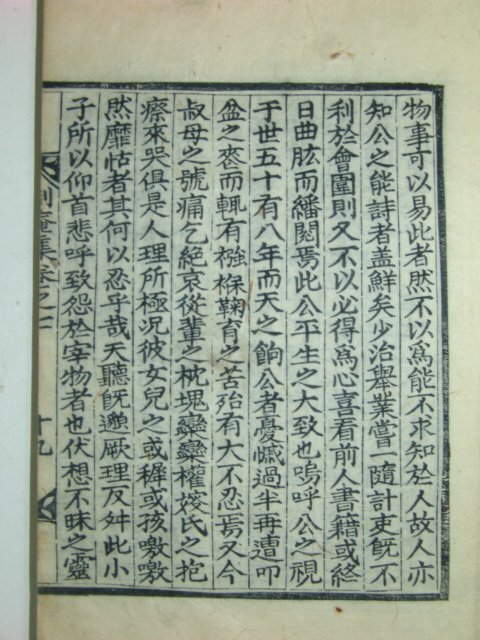 物事可以易此者然不以爲能不求知於人故人亦
知公之能詩者盖鮮矣少治擧業嘗一隨計吏旣不
利於會圍則又不以必得爲心喜看前人書籍或終
日曲肱而繙閱焉此公平生之大致也嗚呼公之視
于世五十有八年而天之餉公者憂慽過半再遭叩
盆之喪而輒有襁褓鞠育之苦殆有大不忍焉又今
叔母之號痛乞絶哀從輩之枕塊欒欒權姣氏之抱
瘵來哭俱是人理所極况彼女兒之或穉或孩噭噭
然靡怙者其何以忍乎哉天聽旣邈厥理反舛此小
子所以仰首悲呼致怨於宰物者也伏想不昧之靈
菴集卷之二
十九